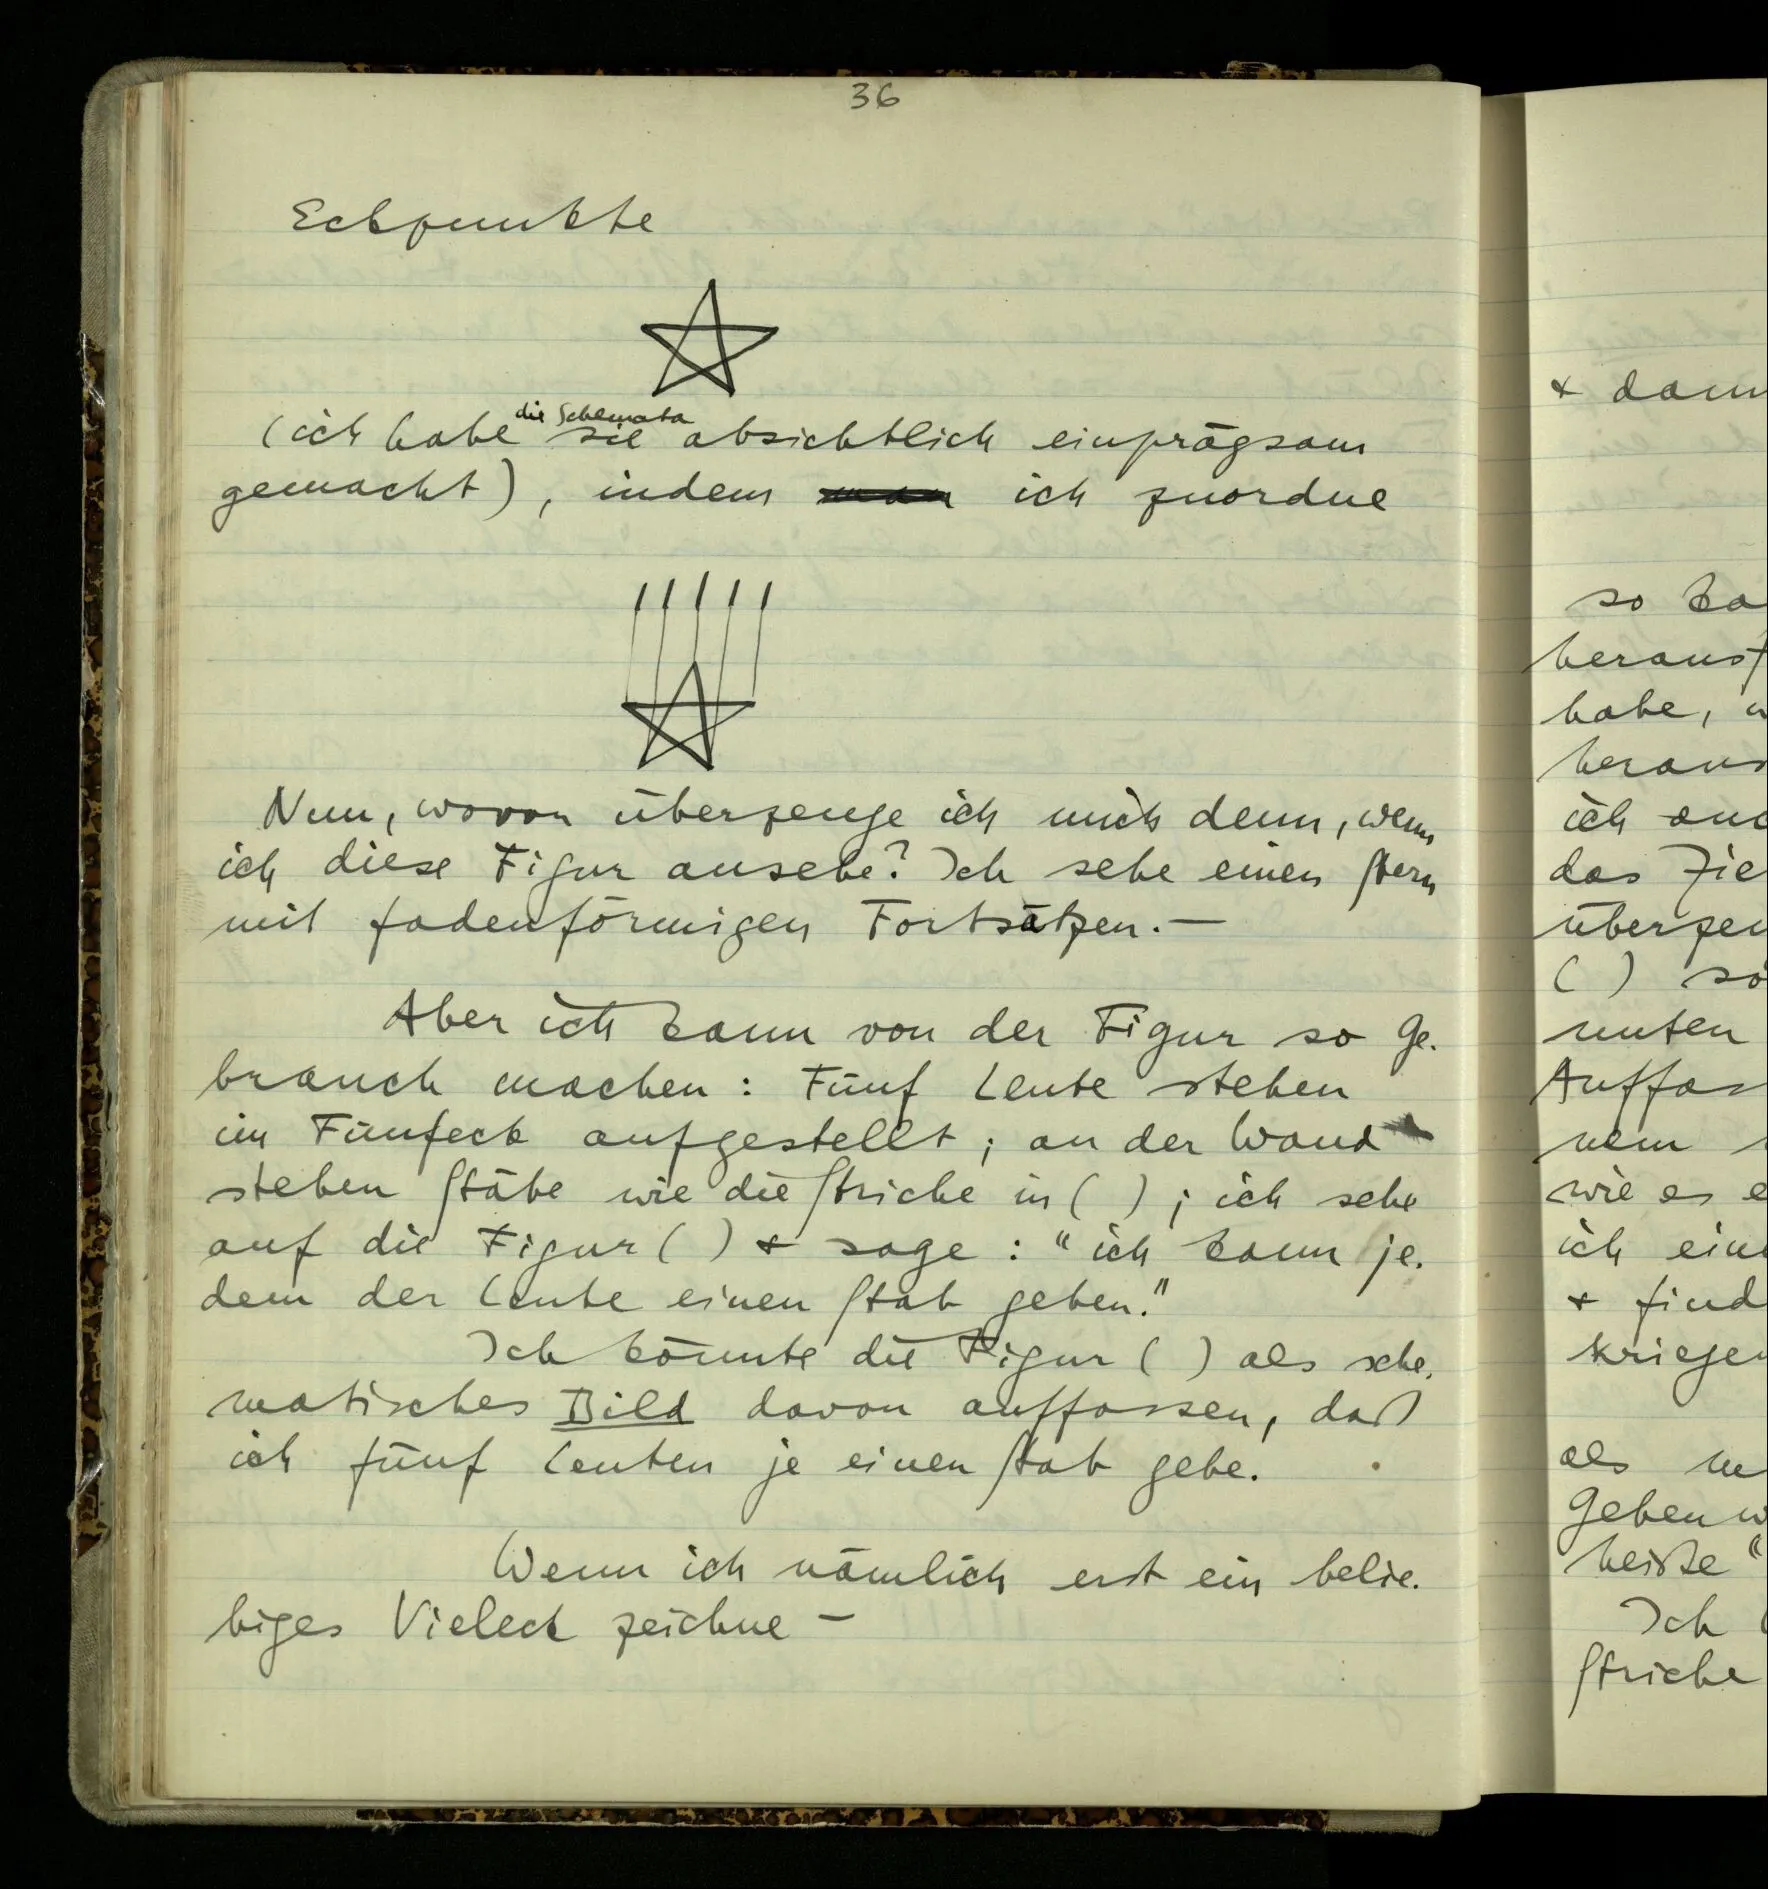 36
Eckpunkte
die Schemata
(ich habe sie absichtlich einprägsam
gemacht), indem man ich zuordne
Nun, wovon überzeuge ich mich denn, wenn
ich diese Figur ansehe? Ich sehe einen Stern
mit fadenförmigen Fortsätzen. —
Aber ich kann von der Figur so Ge-
brauch machen: Fünf Leute stehen
im Fünfeck aufgestellt; an der Wand
stehen Stäbe wie die Striche in ( ); ich sehe
auf die Figur ( ) & sage: "ich kann je-
dem der Leute einen Stab geben."
Ich könnte die Figur ( ) als sche-
matisches Bild davon auffassen, daß
ich fünf Leuten je einen Stab gebe.
Wenn ich nämlich erst ein belie-
biges Vieleck zeichne —
& dann
so ka
herausf
habe, w
heraus
ich auc
das Zie
überzeu
( ) so
unten
Auffas
nem
wie es e
ich ein
& find
kriegen
als
Geben w
heiße "
Ich
Striche